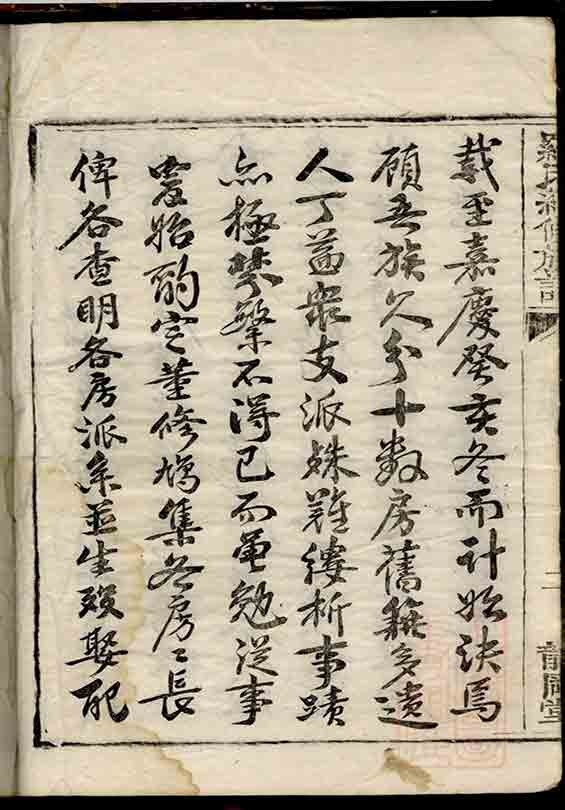 載至嘉慶癸亥冬而計始決焉
顧吾族久分十數房舊籍多遺
人丁益眾支派殊難縷析事蹟
亦極棼繁不得已而黽勉從事
爰始酌定董修鳩集各房〻長
俾各查明各房派系並生歿娶配